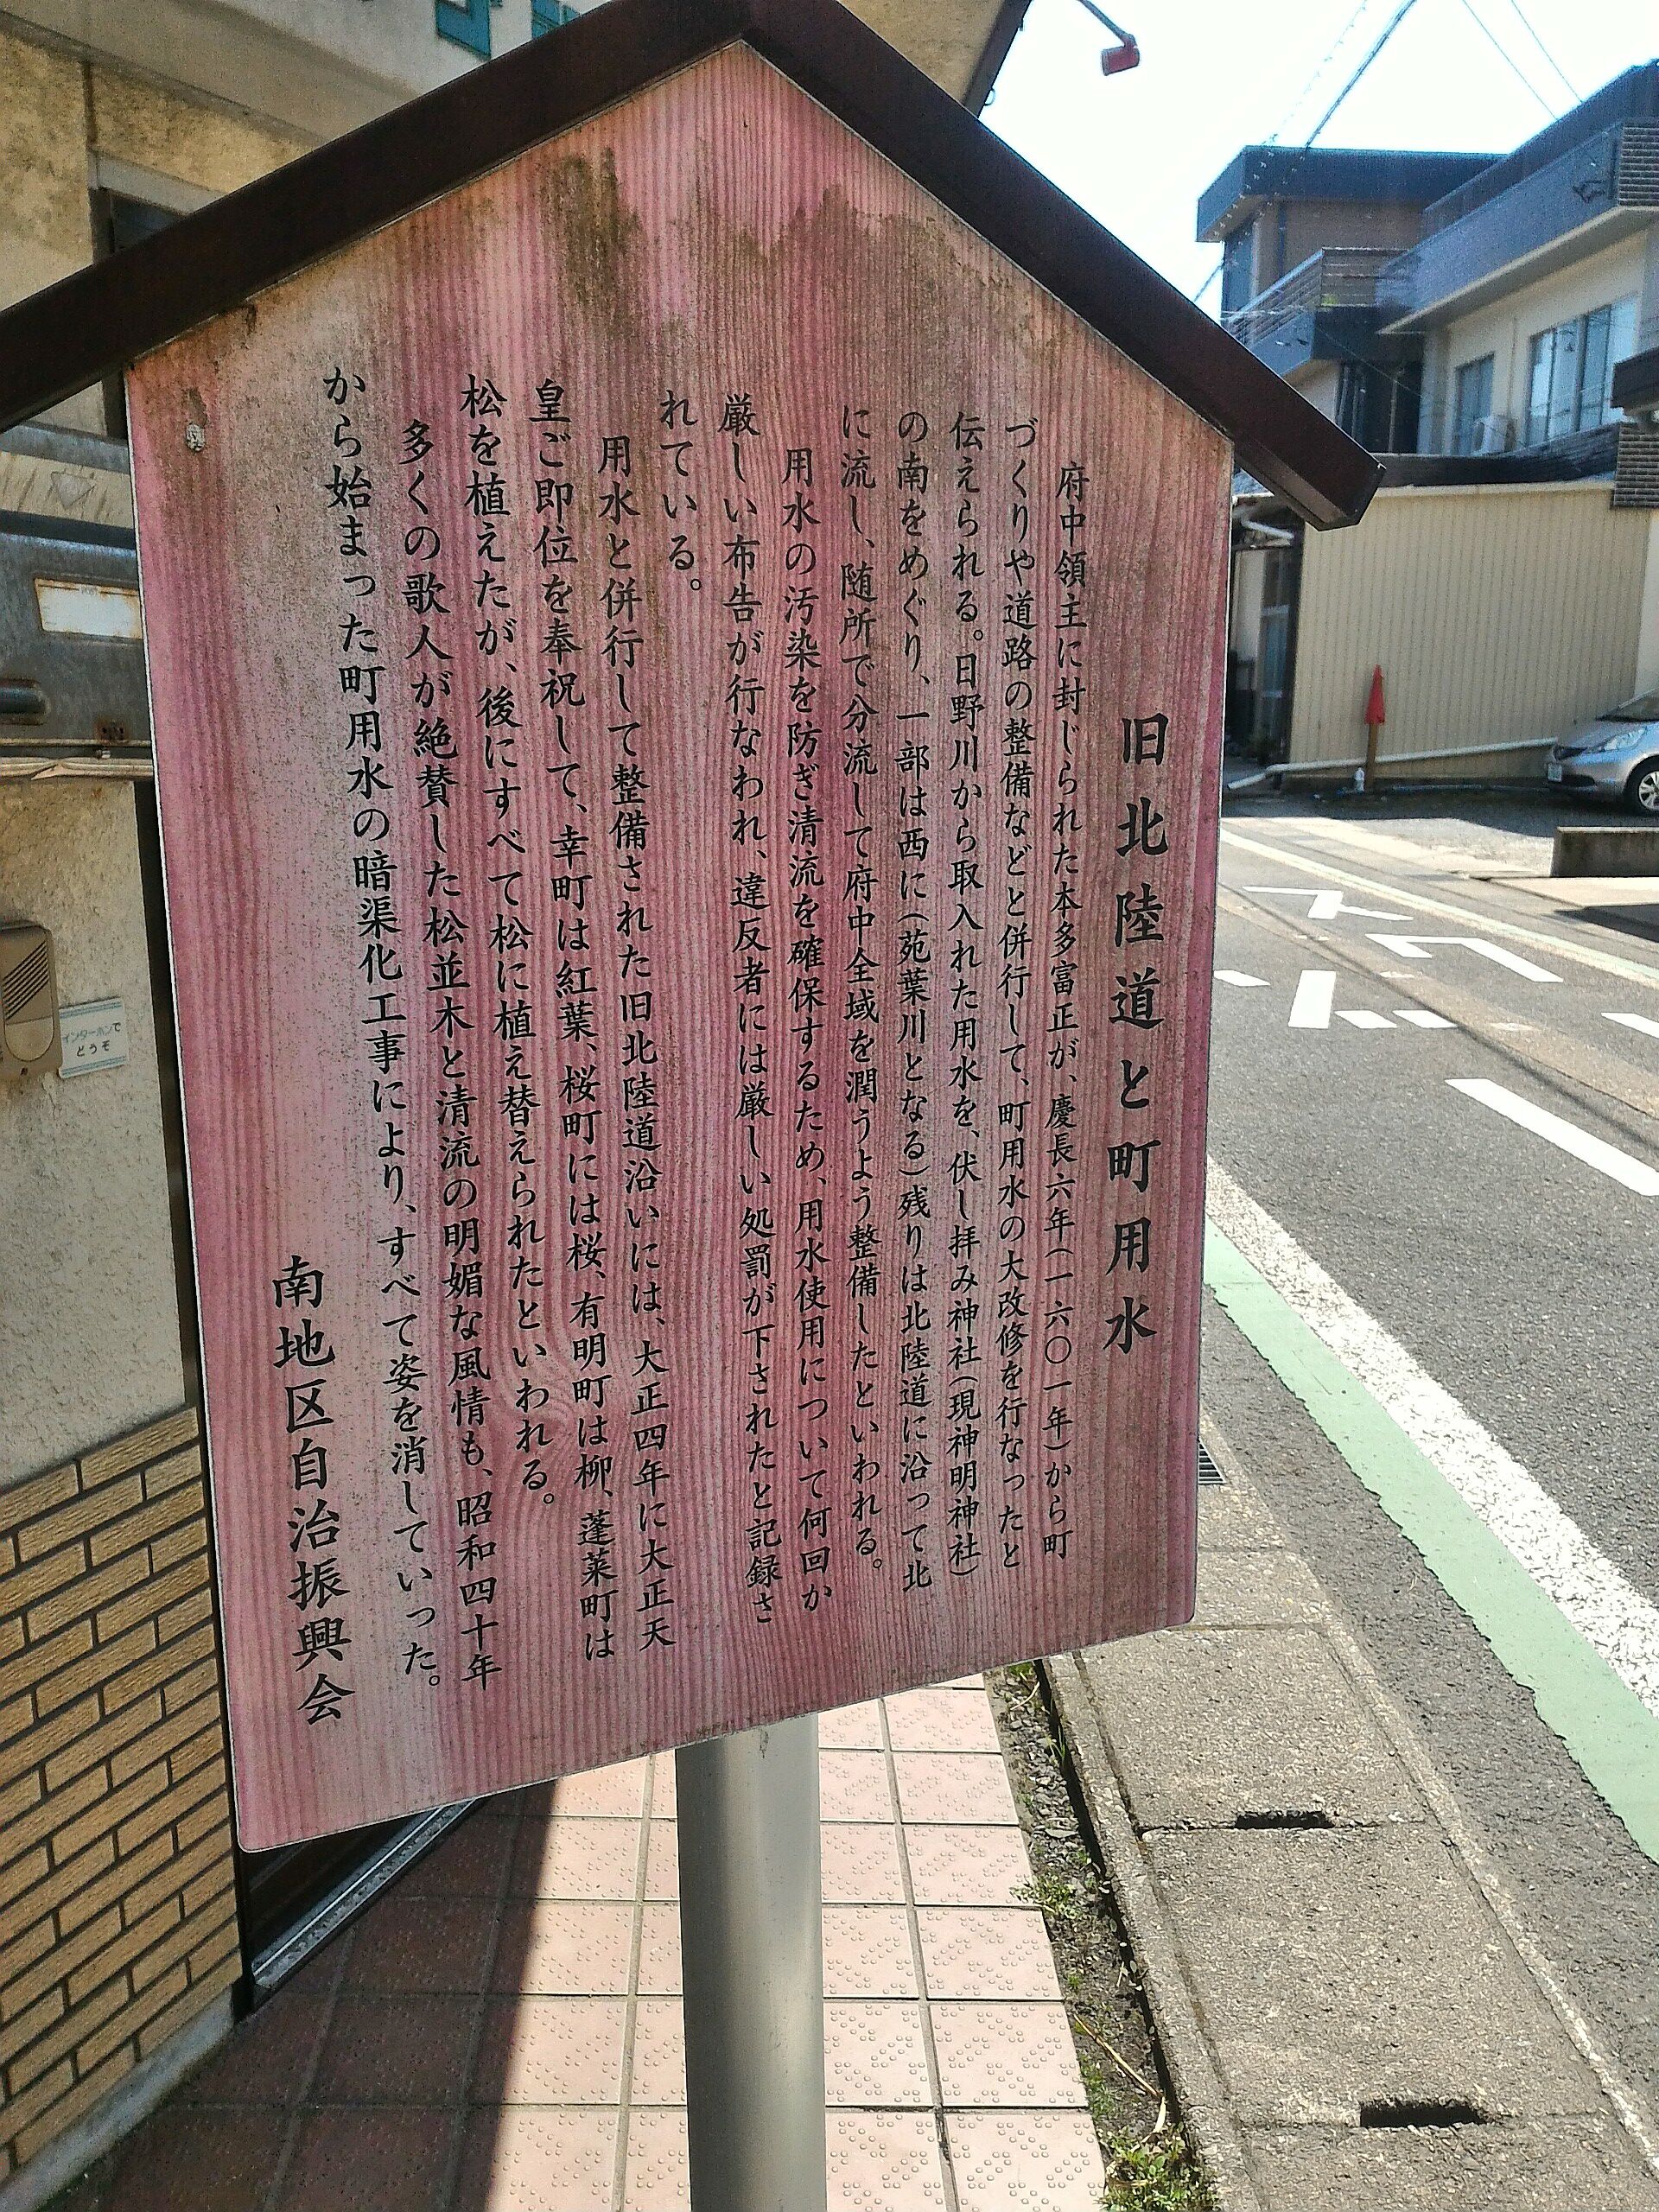 旧北陸道と町用水
府中領主に封じられた本多富正が、慶長六年(一六〇一年)から町
づくりや道路の整備などと併行して、町用水の大改修を行なったと
伝えられる。日野川から取入れた用水を、伏し拝み神社(現神明神社)
の南をめぐり、一部は西に(苑葉川となる)残りは北陸道に沿って北
に流し、随所で分流して府中全域を潤うよう整備したといわれる。
用水の汚染を防ぎ清流を確保するため、用水使用について何回か
厳しい布告が行なわれ、違反者には厳しい処罰が下されたと記録さ
れている。
用水と併行して整備された旧北陸道沿いには、大正四年に大正天
皇ご即位を奉祝して、幸町は紅葉、桜町には桜、有明町は柳、蓬莱町は
松を植えたが、後にすべて松に植え替えられたといわれる。
多くの歌人が絶賛した松並木と清流の明媚な風情も、昭和四十年
から始まった町用水の暗渠化工事により、すべて姿を消していった。
南地区自治振興会
インターホンで
どうぞ